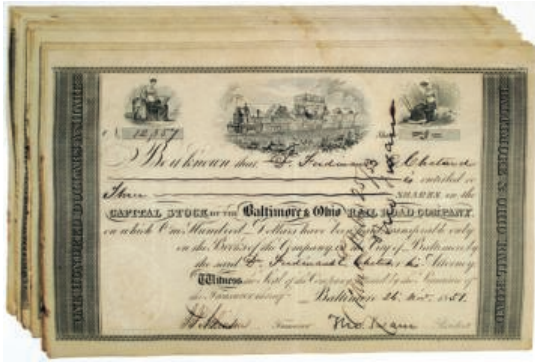 No 12,857 Shares
Be it known that Dr. Ferdinand E. Chatard
is entitled to
SHARES in the
CAPITAL STOCK OF THE Baltimore & Ohio RAIL ROAD COMPANY,
on which One Hundred Dollars have been paid transferable only
on the Books of the Company in the City of Baltimore by
the said Dr. Ferdinand E. Chatard or his Attorney.
Witness the Seal of the Company and the Signature of
the Treasurer
Baltimore 26 Nov. 1851
Treasurer President
ONE HUNDRED DOLLARS A SHARE
BALTIMORE & OHIO RAIL ROAD